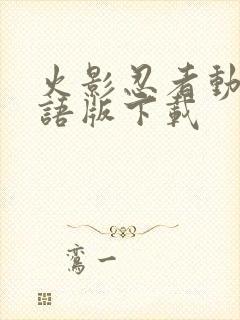 火影忍者動
語版下載
鸞一